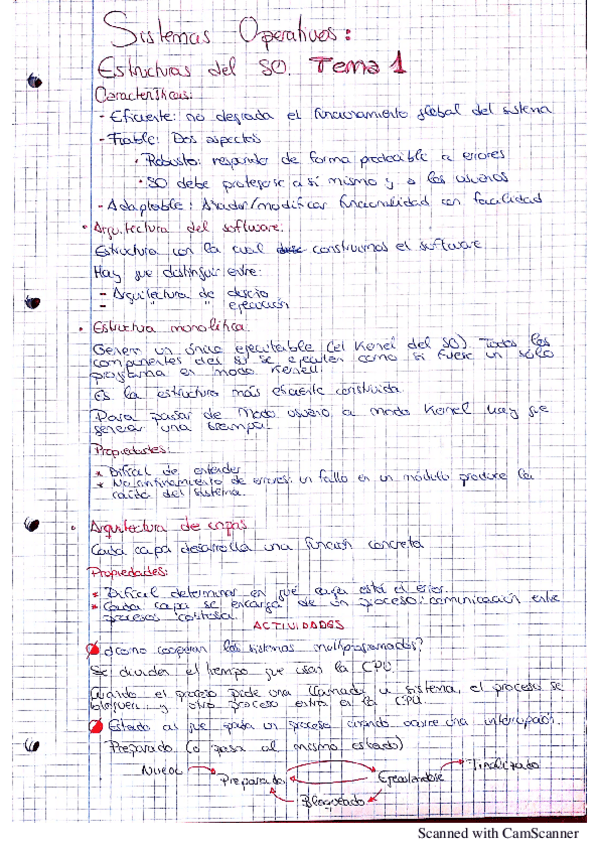 Sistemas Operativos:
Estructuras del SO. Tema 1
Características:
- Eficiente: no degrada el funcionamiento global del sistema
- Fiable: Dos aspectos
· Robusto: responde de forma predecible a errores
· SO debe protegerse a sí mismo y a los usuarios
- Adaptable: Añadir/modificar funcionalidad con facilidad
· Arquitectura del software:
Estructura con la cual construimos el software
Hay que distinguir entre:
- Arquitectura de diseño
- " " ejecución
· Estructura monolítica:
Genera un único ejecutable (el Kernel del SO). Todos los
componentes del SO se ejecutan como si fuese un sólo
programa en modo Kernell.
Es la estructura más eficiente construida
Para pasar de modo usuario a modo Kernel hay que
generar una trampa.
Propiedades:
* Difícil de entender
* No confinamiento de errores: un fallo en un módulo produce la
caída del sistema.
· Arquitectura de capas
Cada capa desarrolla una función concreta
Propiedades:
* Difícil determinar en qué capa está el error.
* Cada capa se encarga de un proceso: comunicación entre
procesos costosa.
ACTIVIDADES
¿Cómo cooperan los sistemas multiprogramados?
Se dividen el tiempo que usan la CPU.
Cuando el proceso pide una llamada al sistema, el proceso se
bloquea y otro proceso entra en la CPU.
Estado al que pasa un proceso cuando ocurre una interrupción.
Preparado (o pasa al mismo estado)
Nuevo → Preparado Ejecutándose → Finalizado
Bloqueado
Scanned with CamScanner